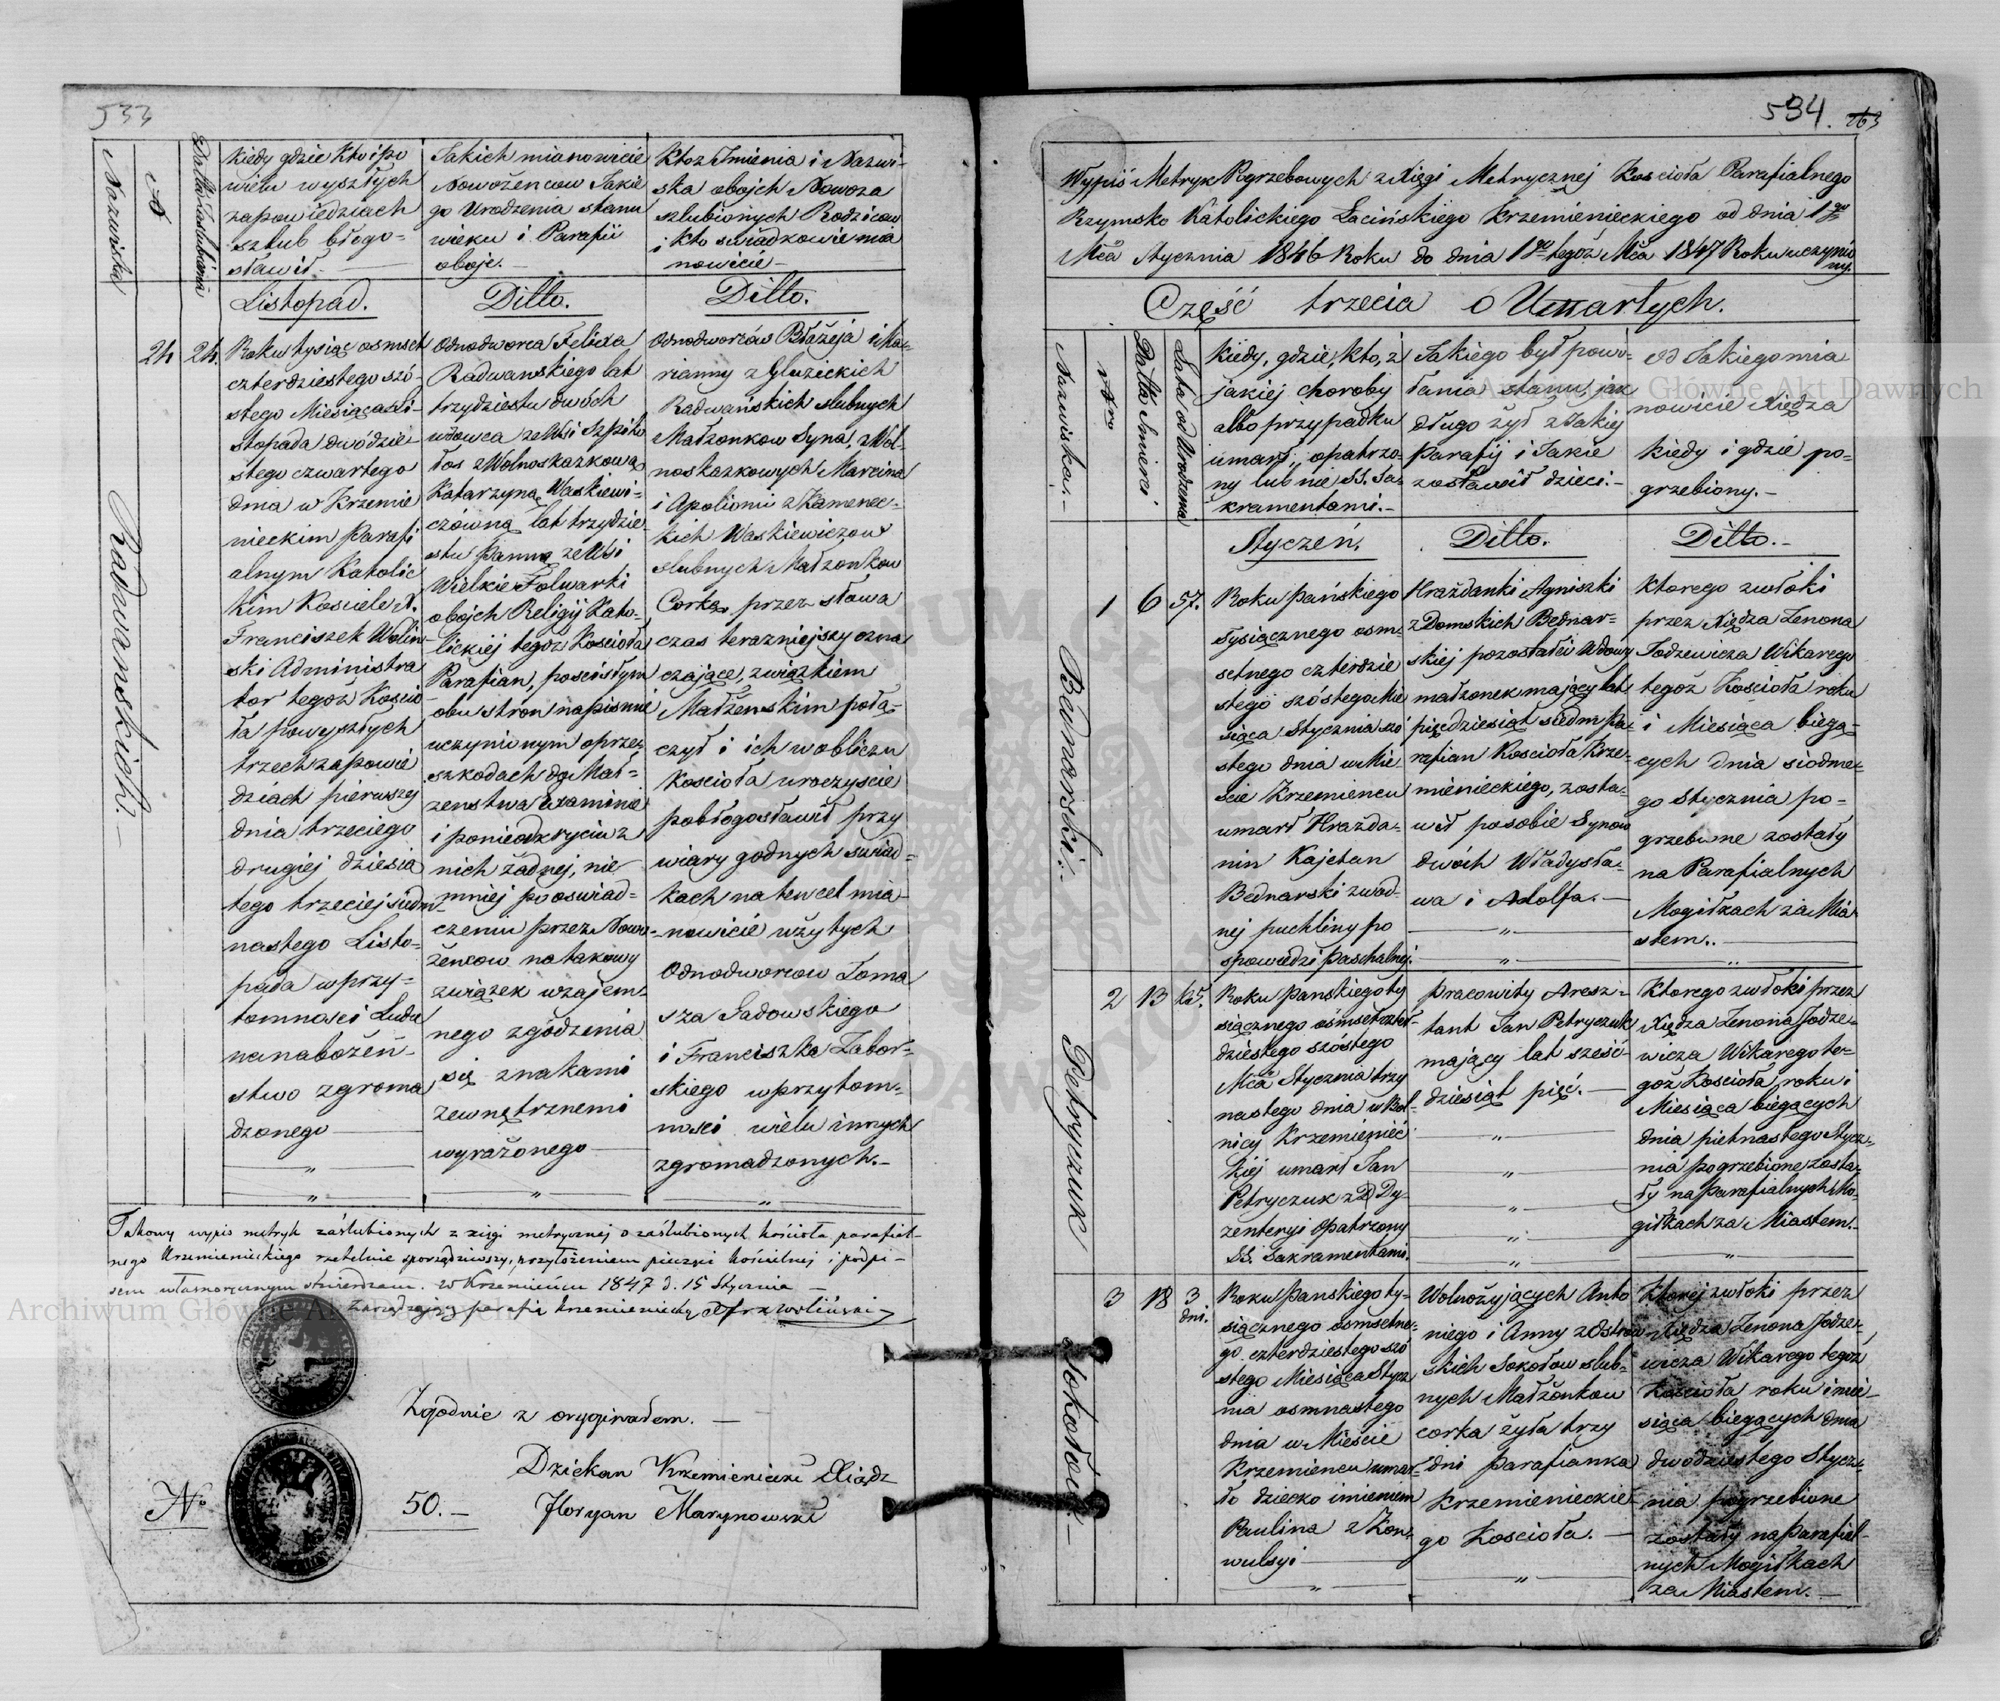 533
Nazwiska
№
Datta Zaslubienia
Kiedy gdzie Kto i po
wielu wyszłych
zapowiedziach
szlub błogo-
sławił.
Jakich mianowicie
Nowożencow Jakie
go Urodzenia stanu
wieku i Parafii
oboje.-
Kto z Imienia i Nazwi-
ska obojch Nowoza
szlubionych Rodzicow
i kto swiadkowie mia
nowicie-
Listopad.
Ditto.
Ditto.
Radwanskich.-
24
24.
Roku tysiąc osmset
czterdziestego szó-
stego Miesiąca Li-
stopada dwódzie-
stego czwartego
dnia w Krzemie
nieckim Parafi
alnym Katolic
kim Kosciele X.
Franciszek Wolin-
ski Administra
tor tegoż Koscio
ła powyszłych
trzech zapowie
dziach pierwszey
dnia trzeciego
drugiej dziesia
tego trzeciej siedm-
nastego Listo-
pada w przy-
tomnosci Ludu
na nabożeń-
stwo zgroma
dzonego
Odnodworca Felixa
Radwanskiego lat
trzydziestu dwóch
wdowca ze Wsi Szpiko
łos z Wolnoskazkową
Katarzyną Waskiewi-
czówną lat trzydzie
stu Panną ze Wsi
Wielkie Folwarki
obojch Religij Kato-
lickiej tegoż Kościoła
Parafian, pościsłym
obu stron napismie
uczynionym oprzez
szkodach do Mał-
zenstwa Examinie
i ponieodkryciu z
nich żadnej, nie
mniej po oswiad-
czeniu przez Nowo-
żencow na takowy
związek wzajem-
nego zgodzenia
się znakami
zewnętrznemi
wyrażonego
Odnodworców Błażeja i Ma-
rianny z Gluzickich
Radwańskich slubnych
Małzonkow Syna, z Wol-
noskazkowych Marcina
i Apolionii z Kamenec-
kich Waskiewiczow
slubnych Małzonkow
Corką, przez słowa
czas terazniejszy ozna
czające, związkiem
Małżenskim połą-
czył i ich w obliczu
Kościoła uroczyscie
pobłogosławił przy
wiary godnych swiad-
kach na ten cel mia-
nowicie wżytych
Odnodworcow Toma
sza Sadowskiego
i Franciszka Zabor-
skiego w przytom-
nosci wielu innych
zgromadzonych.-
Takowy wypis metryk zaślubionych z xięgi metrycznej o zaślubionych kościoła parafial-
nego Krzemienieckiego rzetelnie sporządziwszy, przyłożeniem pieczęci kościelnej i podpi-
sem własnoręcznym stwierdzam. w Krzemieńcu 1847 d. 15 Stycznia
Zarządzający parafią krzemieniecką X Frz Woliński
Zgodnie z oryginałem. -
Dziekan Krzemieniecki Xiądz
Floryan Marynowski
№ 50.-
534. 263
Wypis Metryk Pogrzebowych z Xięgi Metrycznej Kościoła Parafialnego
Rzymsko Katolickiego Łacińskiego Krzemienieckiego od dnia 1go
Mca Stycznia 1846 Roku do dnia 1go tegoż Mca 1847 Roku uczynio
ny.
Część trzecia o Umarłych.
Nazwiska.-
Nro
Datta Smierci
Lata od Urodzenia
Kiedy, gdzie, kto, z
jakiej choroby
albo przypadku
umarł, opatrzo-
ny lub nie SS. Sa-
kramentami.-
Jakiego był powo-
łania stanu, jak
długo żył z Jakiej
Parafij i Jakie
zostawił dzieci.-
od Jakiego mia
nowicie Xiędza
kiedy i gdzie po-
grzebiony.-
Styczeń.
Ditto.
Ditto.-
Bednarski.
1
6
57.
Roku Pańskiego
tysiącznego osm-
setnego czterdzie
stego szóstego Mie
siąca Stycznia szó
stego dnia w Mie
scie Krzemiencu
umarł Hrażda-
nin Kajetan
Bednarski z wod-
nej puchliny po
spowiedzi Paschalnej.
Hrażdanki Agniszki
z Domskich Bednar-
skiej pozostałéi Wdowy
małzonek mający lat
pięcdziesiąt siedm Pa-
rafian Kościoła Krze-
mienieckiego, zosta-
wił po sobie Synow
dwóch Władysła-
wa i Adolfa.-
Ktorego zwłoki
przez Xiędza Zenona
Jodzewicza Wikarego
tegoż Kościoła roku
i Miesiąca biegą-
cych dnia siodme-
go Stycznia po-
grzebione zostały
na Parafialnych
Mogiłkach za Mia
stem.
Petryczuk
2
13
65.
Roku Panskiego ty
siącznego ośmset czter-
dziestego szóstego
Mca Stycznia trzy
nastego dnia w Bol-
nicy Krzemieniec
kiej umarł Jan
Petryczuk z Dy-
zenteryi Opatrzony
SS. Sakramentami.
Pracowity Aresz-
tant Jan Petryczuk
mający lat sześć-
dziesiąt pięć.-
Ktorego zwłoki przez
Xiędza Zenona Jodze-
wicza Wikarego te-
goż Kościoła, roku i
Miesiąca biegących
dnia pietnastego Stycz-
nia pogrzebione zosta-
ły na Parafialnych Mo-
giłkach za Miastem.
Sokołow.-
3
18
3
dni.
Roku Panskiego ty-
siącznego osmsetne-
go czterdziestego szó
stego Miesiąca Stycz
nia osmnastego
dnia w Miescie
Krzemiencu umar-
ło dziecko imieniem
Paulina z Kon-
wulsyi
Wolnożyjących Anto
niego i Anny z Ostrow
skich Sokołow slub-
nych Małżonkow
corka żyła trzy
dni Parafianka
Krzemienieckie-
go Kościoła.-
Ktorej zwłoki przez
Xiędza Zenona Jodze-
wicza Wikarego tegoż
Kościoła roku i mie-
siąca biegących dnia
dwódziestego Stycz-
nia pogrzebione
zostały na Parafial-
nych Mogiłkach
za Miastem.-
Archiwum Główne Akt Dawnych
Archiwum Główne Akt Dawnych